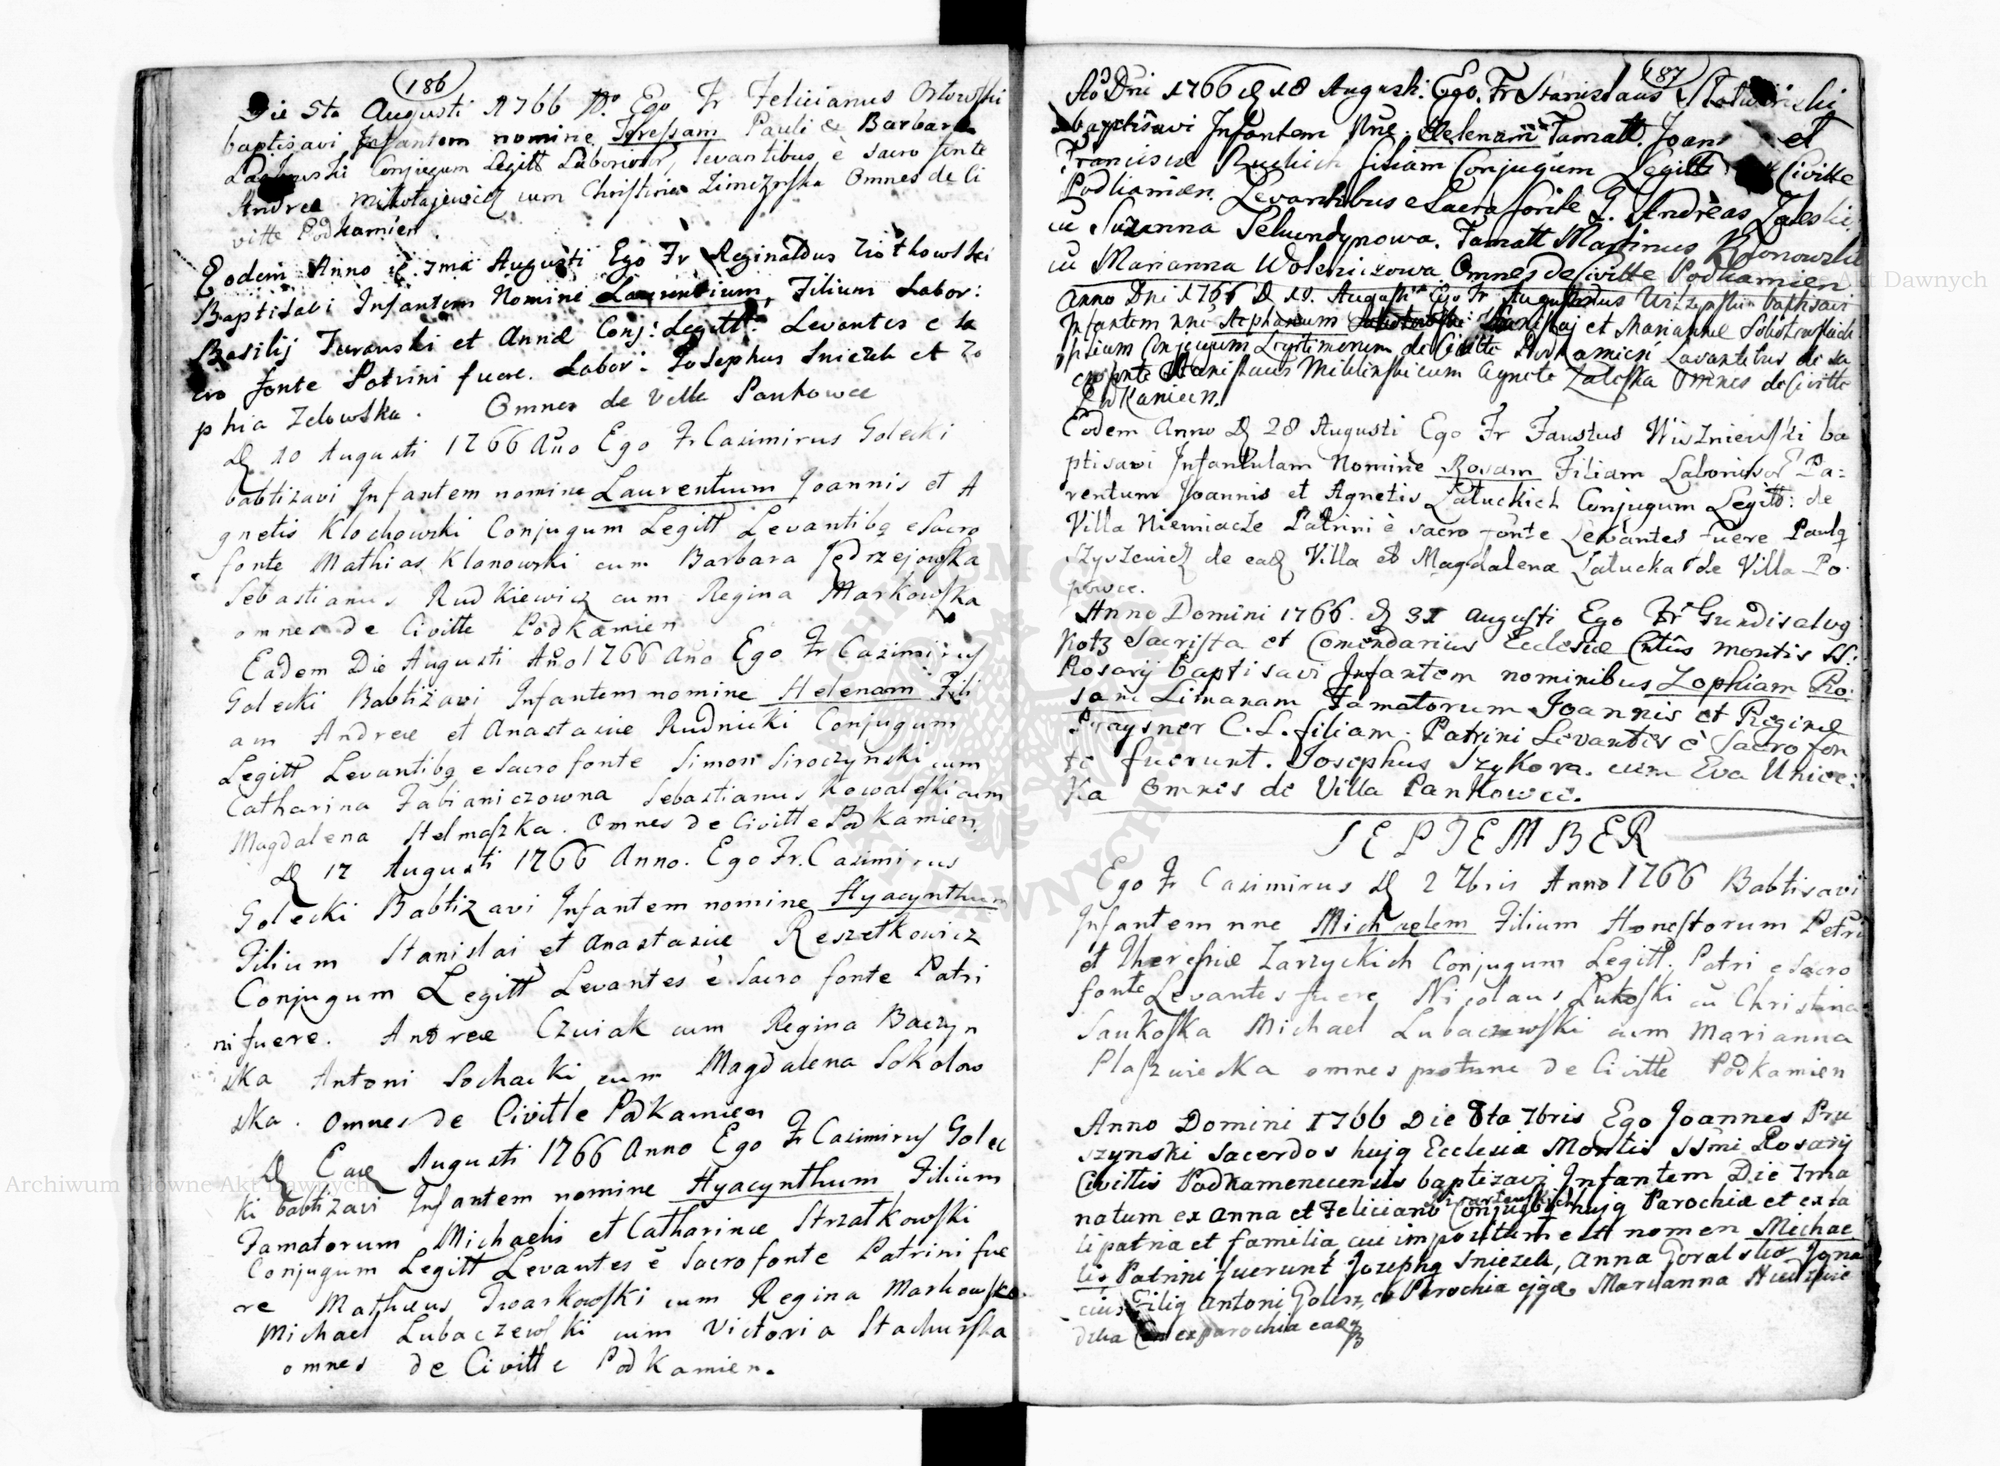 186
Die 5ta Augusti 1766 Ao Ego Fr Felicianus Orłowski
baptisavi Infantem nomine Theressam Pauli & Barbara
Conjugum Legitt Laboriosor, levantibus è sacro fonte
Andreæ Mikołajewicz cum Christina Zimczyska Omnes de Ci
vitte Podkamień
Eodem Anno d. 7ma Augusti Ego Fr Reginaldus Ziotkowski
Baptisavi Infantem Nomine Laurentium, Filium Labor:
Basilij Jurawski et Annæ Conj: Legitt: Levantes e sa
cro fonte Patrini fuere. Labor: Josephus Sniezek et Zo
phia Zelowska. Omnes de Villa Pankowce
D 10 Augusti 1766 Año Ego Fr Casimirus Golecki
babtizavi Infantem nomine Laurentium Joannis et A
gnetis Klochowski Conjugum Legitt Levantibq e Sacro
fonte Mathias Klonowski cum Barbara Jędrzejowska
Sebastianus Rudkiewicz cum Regina Markowska
omnes de Civitte Podkamien
Eadem Die Augusti Año 1766 Año Ego Fr Casimirus
Golecki Babtizavi Infantem nomine Helenam Fili
am Andreæ et Anastasiæ Rudnicki Conjugum
Legitt Levantibq e Sacro fonte Simon Siroczynski cum
Catharina Fabianiczowna Sebastianus Kowalski cum
Magdalena Stelmaszka. Omnes de Civitte Podkamien
D 17 Augusti 1766 Anno. Ego Fr. Casimirus
Golecki Babtizavi Infantem nomine Hyacynthum
Filium Stanislai et Anastasiæ Reszetkowicz
Conjugum Legitt Levantes è Sacro fonte Patri
ni fuere. Andreæ Czuiak cum Regina Baczyn
ska Antoni Sochacki cum Magdalena Sokolow
ska. Omnes de Civitte Podkamien
D Eadē Augusti 1766 Anno Ego Fr Casimirus Golec
ki babtizavi Infantem nomine Hyacynthum Filium
Famatorum Michaelis et Catharinæ Strzałkowski
Conjugum Legitt Levantes è Sacro fonte Patrini fue
re Matheus Twarkowski cum Regina Markowska.
Michael Lubaczewski cum Victoria Stachurska
omnes de Civitte Podkamien.
187
Ao Dni 1766 d 18 Augusti. Ego. Fr Stanislaus
baptisavi Infantem Nne. Helenam Famatt. Joan et
Franciscæ Ruckich filiam Conjugum Legitt Civitte
Podkamien. Levantibus e Sacra fonte G. Andreas Zaleski
cū Suzanna Pelwendynowa. Famatt Martinus Kłonowski
cū Marianna Wolenizowa Omnes de Civitte Podkamien
Anno Dni 1766 D 19. Augusti Ego Fr Augustinus baptisavi
Infantem nnē Stephanum Stanislaj et Marianne
filium Conjugum Legittimorum de Civitte Podkamień Lavantibus de sa
cro fonte Stanislaus Miklinski cum Agnete Zaleska Omnes de Civitte
Podkamien.
Eodem Anno D 28 Augusti Ego Fr Faustus Wiszniewski ba
ptisavi Infantulam Nomine Rosam Filiam Laborios Pa:
rentum Joannis et Agnetis Załuckich Conjugum Legitt: de
Villa Niemiacze Patrini è sacro fonte Levantes fuere Paulq
Szyszewicz de eadē Villa et Magdalena Załucka de Villa Po
powce.
Anno Domini 1766. D 31 Augusti Ego Fr Gundisalvq
Kotz Sacrista et Comendarius Ecclesiæ Cntûs montis SS:
Rosarij baptisavi Infantem nominibus Zophiam Ro:
sam Limanam Famatorum Joannis et Reginæ
Praysner C. L. filiam. Patrini Levantes è Sacro fon
te fuerunt. Josephus Szykora. cum Eva Unice:
Ka Omnes de Villa Pankowce.
SEPTEMBER
Ego Fr Casimirus D 2 7bris Anno 1766 Babtisavi
Infantem nne Michaelem Filium Honestorum Petri
et Theresiæ Zarzyckich Conjugum Legitt. Patri e Sacro
fonte Levantes fuere Nicolaus Lukoski cū Christina
Saukoska Michael Lubaczewski cum Marianna
Plaszwieska omnes de Civitte Podkamien
Anno Domini 1766 Die 8ta 7bris Ego Joannes Pru
szynski Sacerdos hujq Ecclesiæ Montis SSmi Rosarij
Civittis Podkamenecensis baptizavi Infantem Die 7ma
natum ex Anna et Feliciano Conjugibq hujq Parochiæ et exta
li patria et familia cui impositum est nomen Michae
lis Patrini fuerunt Josephq Sniezek, Anna Goralska Igna
cius Filiq Antoni Golisz, ex Parochia ejqdē Marianna
ex parochia eadē
Archiwum Główne Akt Dawnych
Archiwum Główne Akt Dawnych
ARCHIWUM GŁÓWNE AKT DAWNYCH